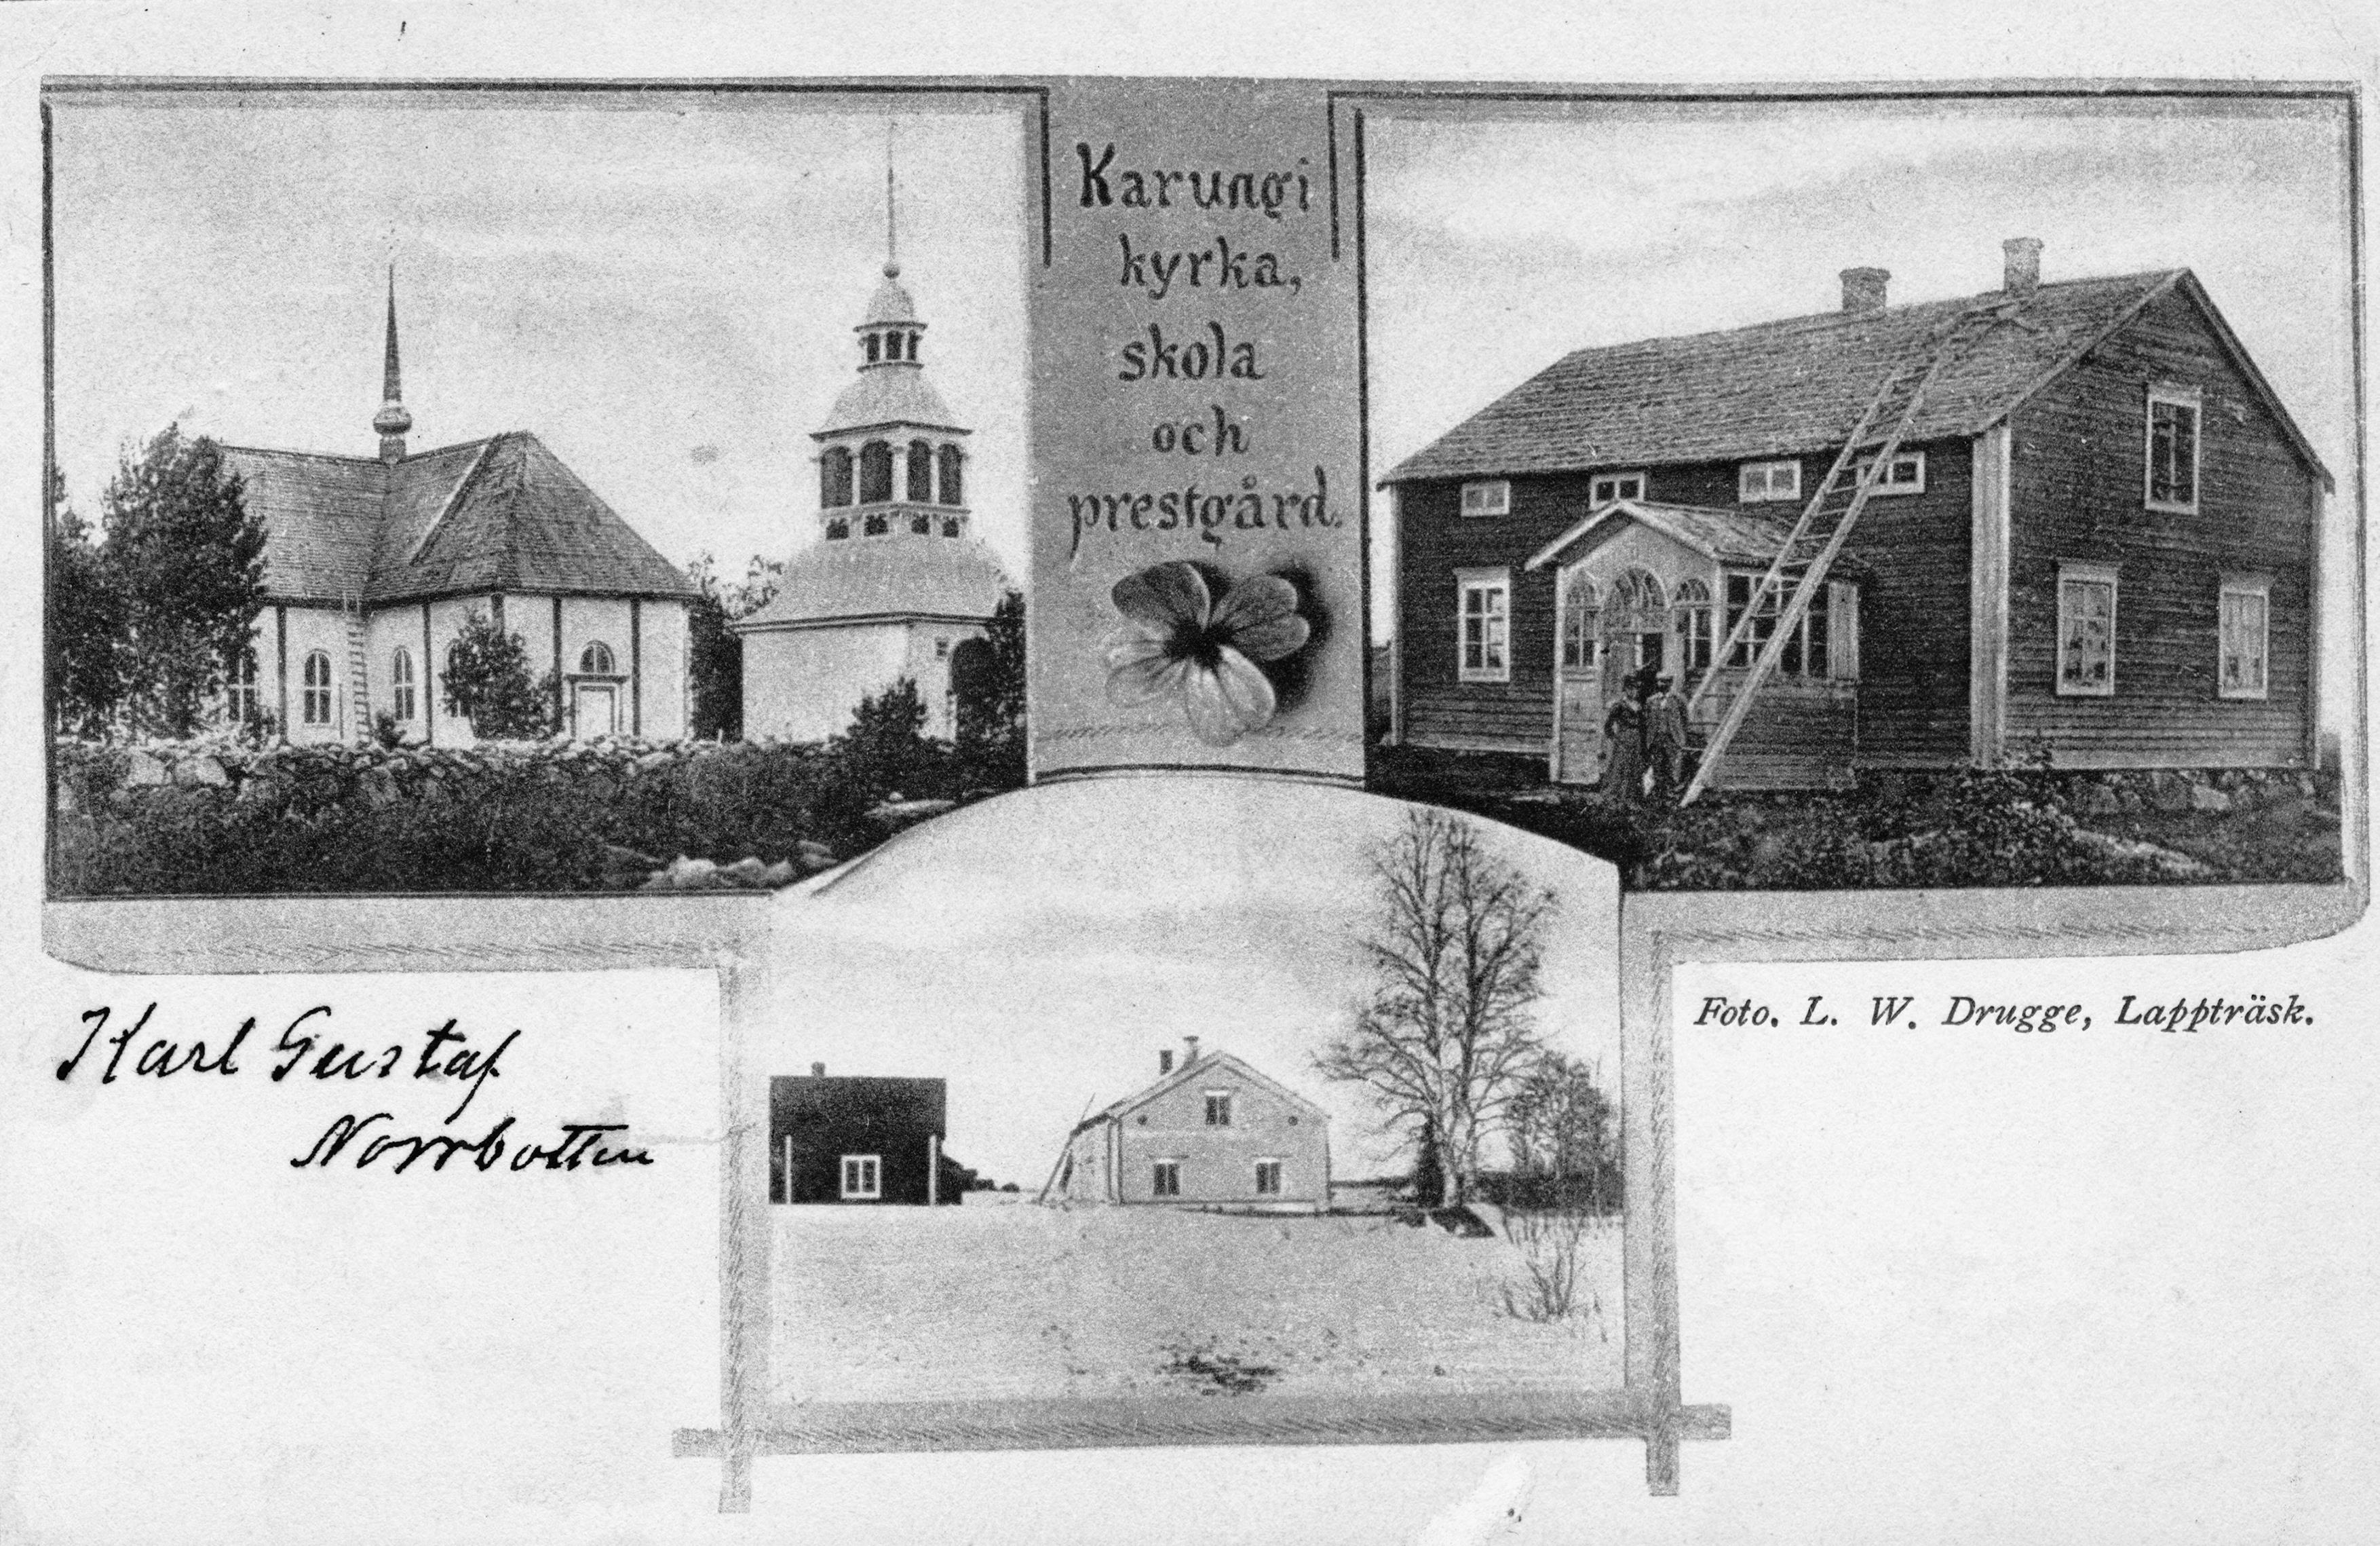 Karungi
kyrka,
skola
och
prestgård.
Karl Gustaf
Norrbotten
Foto. L. W. Drugge, Lappträsk.